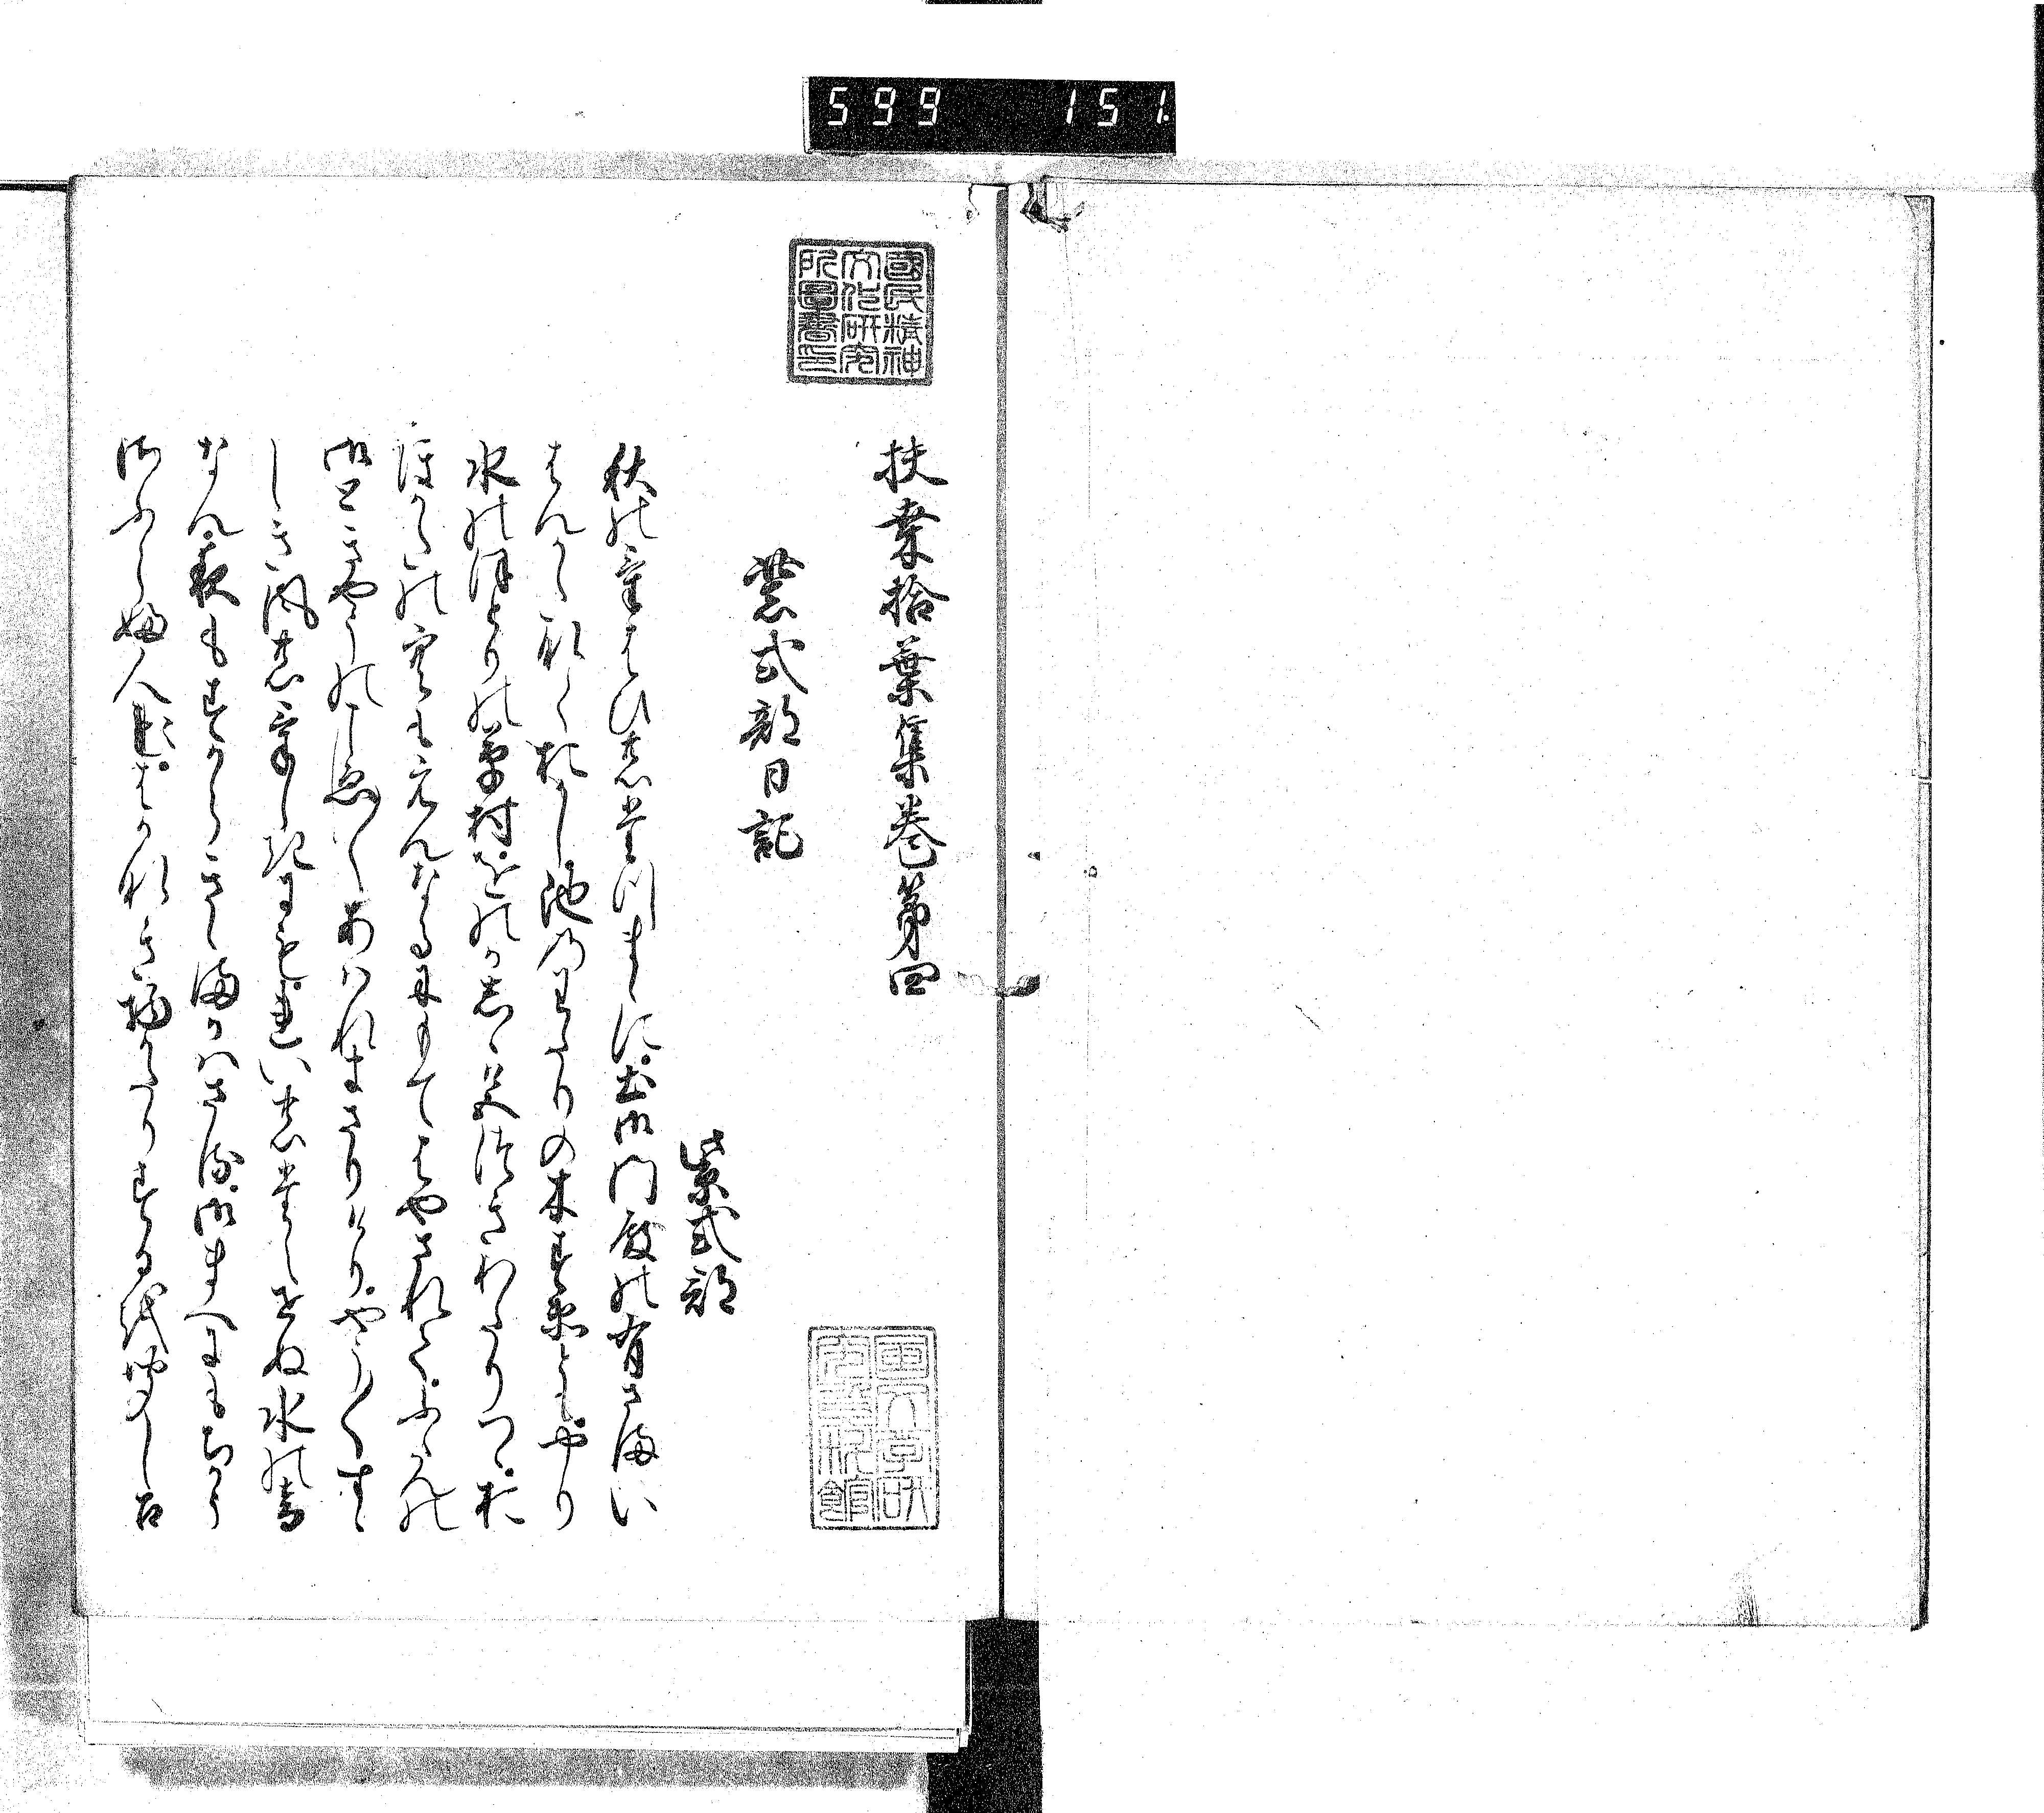 599 151
國民精神
文化研究
所圖書印
扶桒拾葉集巻第四
紫式部日記
紫式部
秋のけはひのたつまゝに土御門殿の有さまい
はんかたなくおかし池のわたりの木すゑともやり
水のほとりの草村をのかしゝ色つきわたりつゝお
ほかたの空もえんなるにもてはやされてふたんの
御どきやうのこゑ〱あはれまさりけりやう〱すゝ
しき風のけしきにもれいのたえせぬ水の音
なん夜もすからきゝまかはさる御まへにもちかう
さふらふ人〱はかなき物かたりするを聞しめ